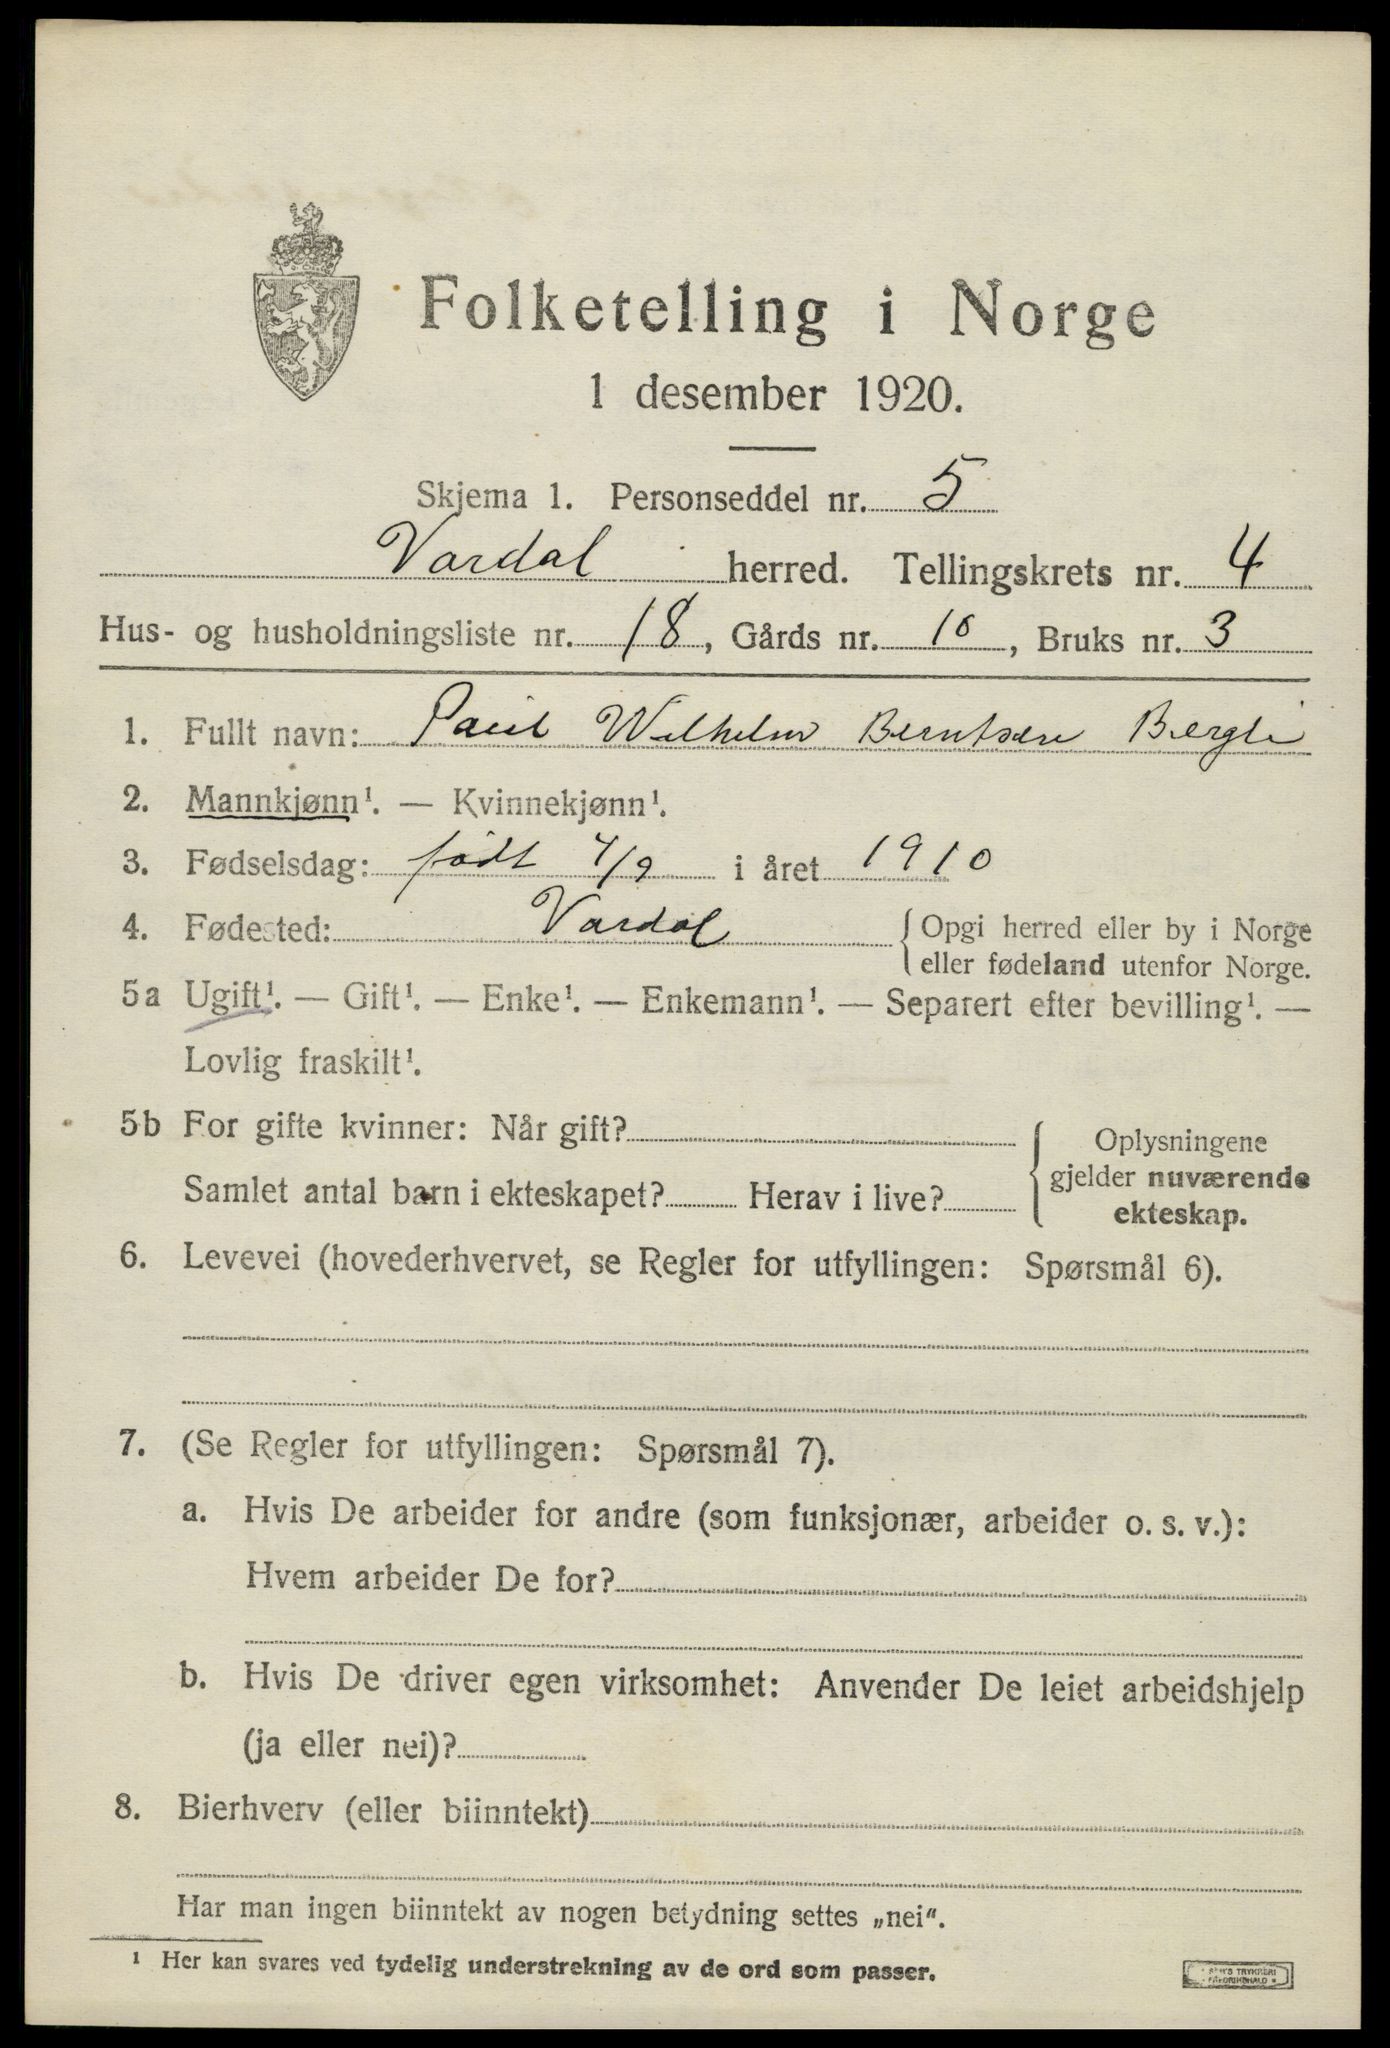 Folketelling i Norge
1 desember 1920.
Skjema 1. Personseddel nr. 5
Vardal herred. Tellingskrets nr. 4
Hus- og husholdningsliste nr. 18, Gårds nr. 10, Bruks nr. 3
1. Fullt navn: Paul Wilhelm Berntsen Bergli
2. Mannkjønn¹. — Kvinnekjønn¹.
3. Fødselsdag: født 4/9 i året 1910
4. Fødested: Vardal
Opgi herred eller by i Norge
eller fødeland utenfor Norge.
5a Ugift¹. — Gift¹. — Enke¹. — Enkemann¹. — Separert efter bevilling¹. —
Lovlig fraskilt¹.
5b For gifte kvinner: Når gift?
Samlet antal barn i ekteskapet? Herav i live?
Oplysningene
gjelder nuværende
ekteskap.
6. Levevei (hovederhvervet, se Regler for utfyllingen: Spørsmål 6).
7. (Se Regler for utfyllingen: Spørsmål 7).
a. Hvis De arbeider for andre (som funksjonær, arbeider o. s. v.):
Hvem arbeider De for?
b. Hvis De driver egen virksomhet: Anvender De leiet arbeidshjelp
(ja eller nei)?
8. Bierhverv (eller biinntekt)
Har man ingen biinntekt av nogen betydning settes „nei".
¹ Her kan svares ved tydelig understrekning av de ord som passer.
TRYKKERI
FREDRIKSHALD